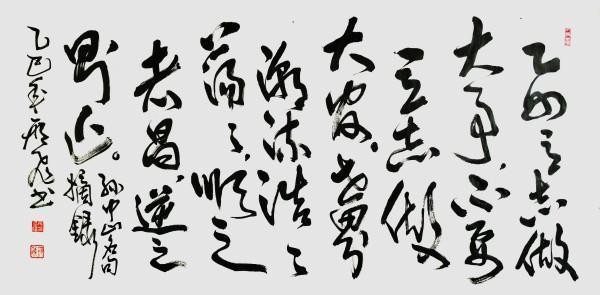 立志做
大事，不要
立志做
大官。世界
潮流浩浩
荡荡，顺之
者昌，逆之
则亡。孙中山名句
摘录
乙巳年 书